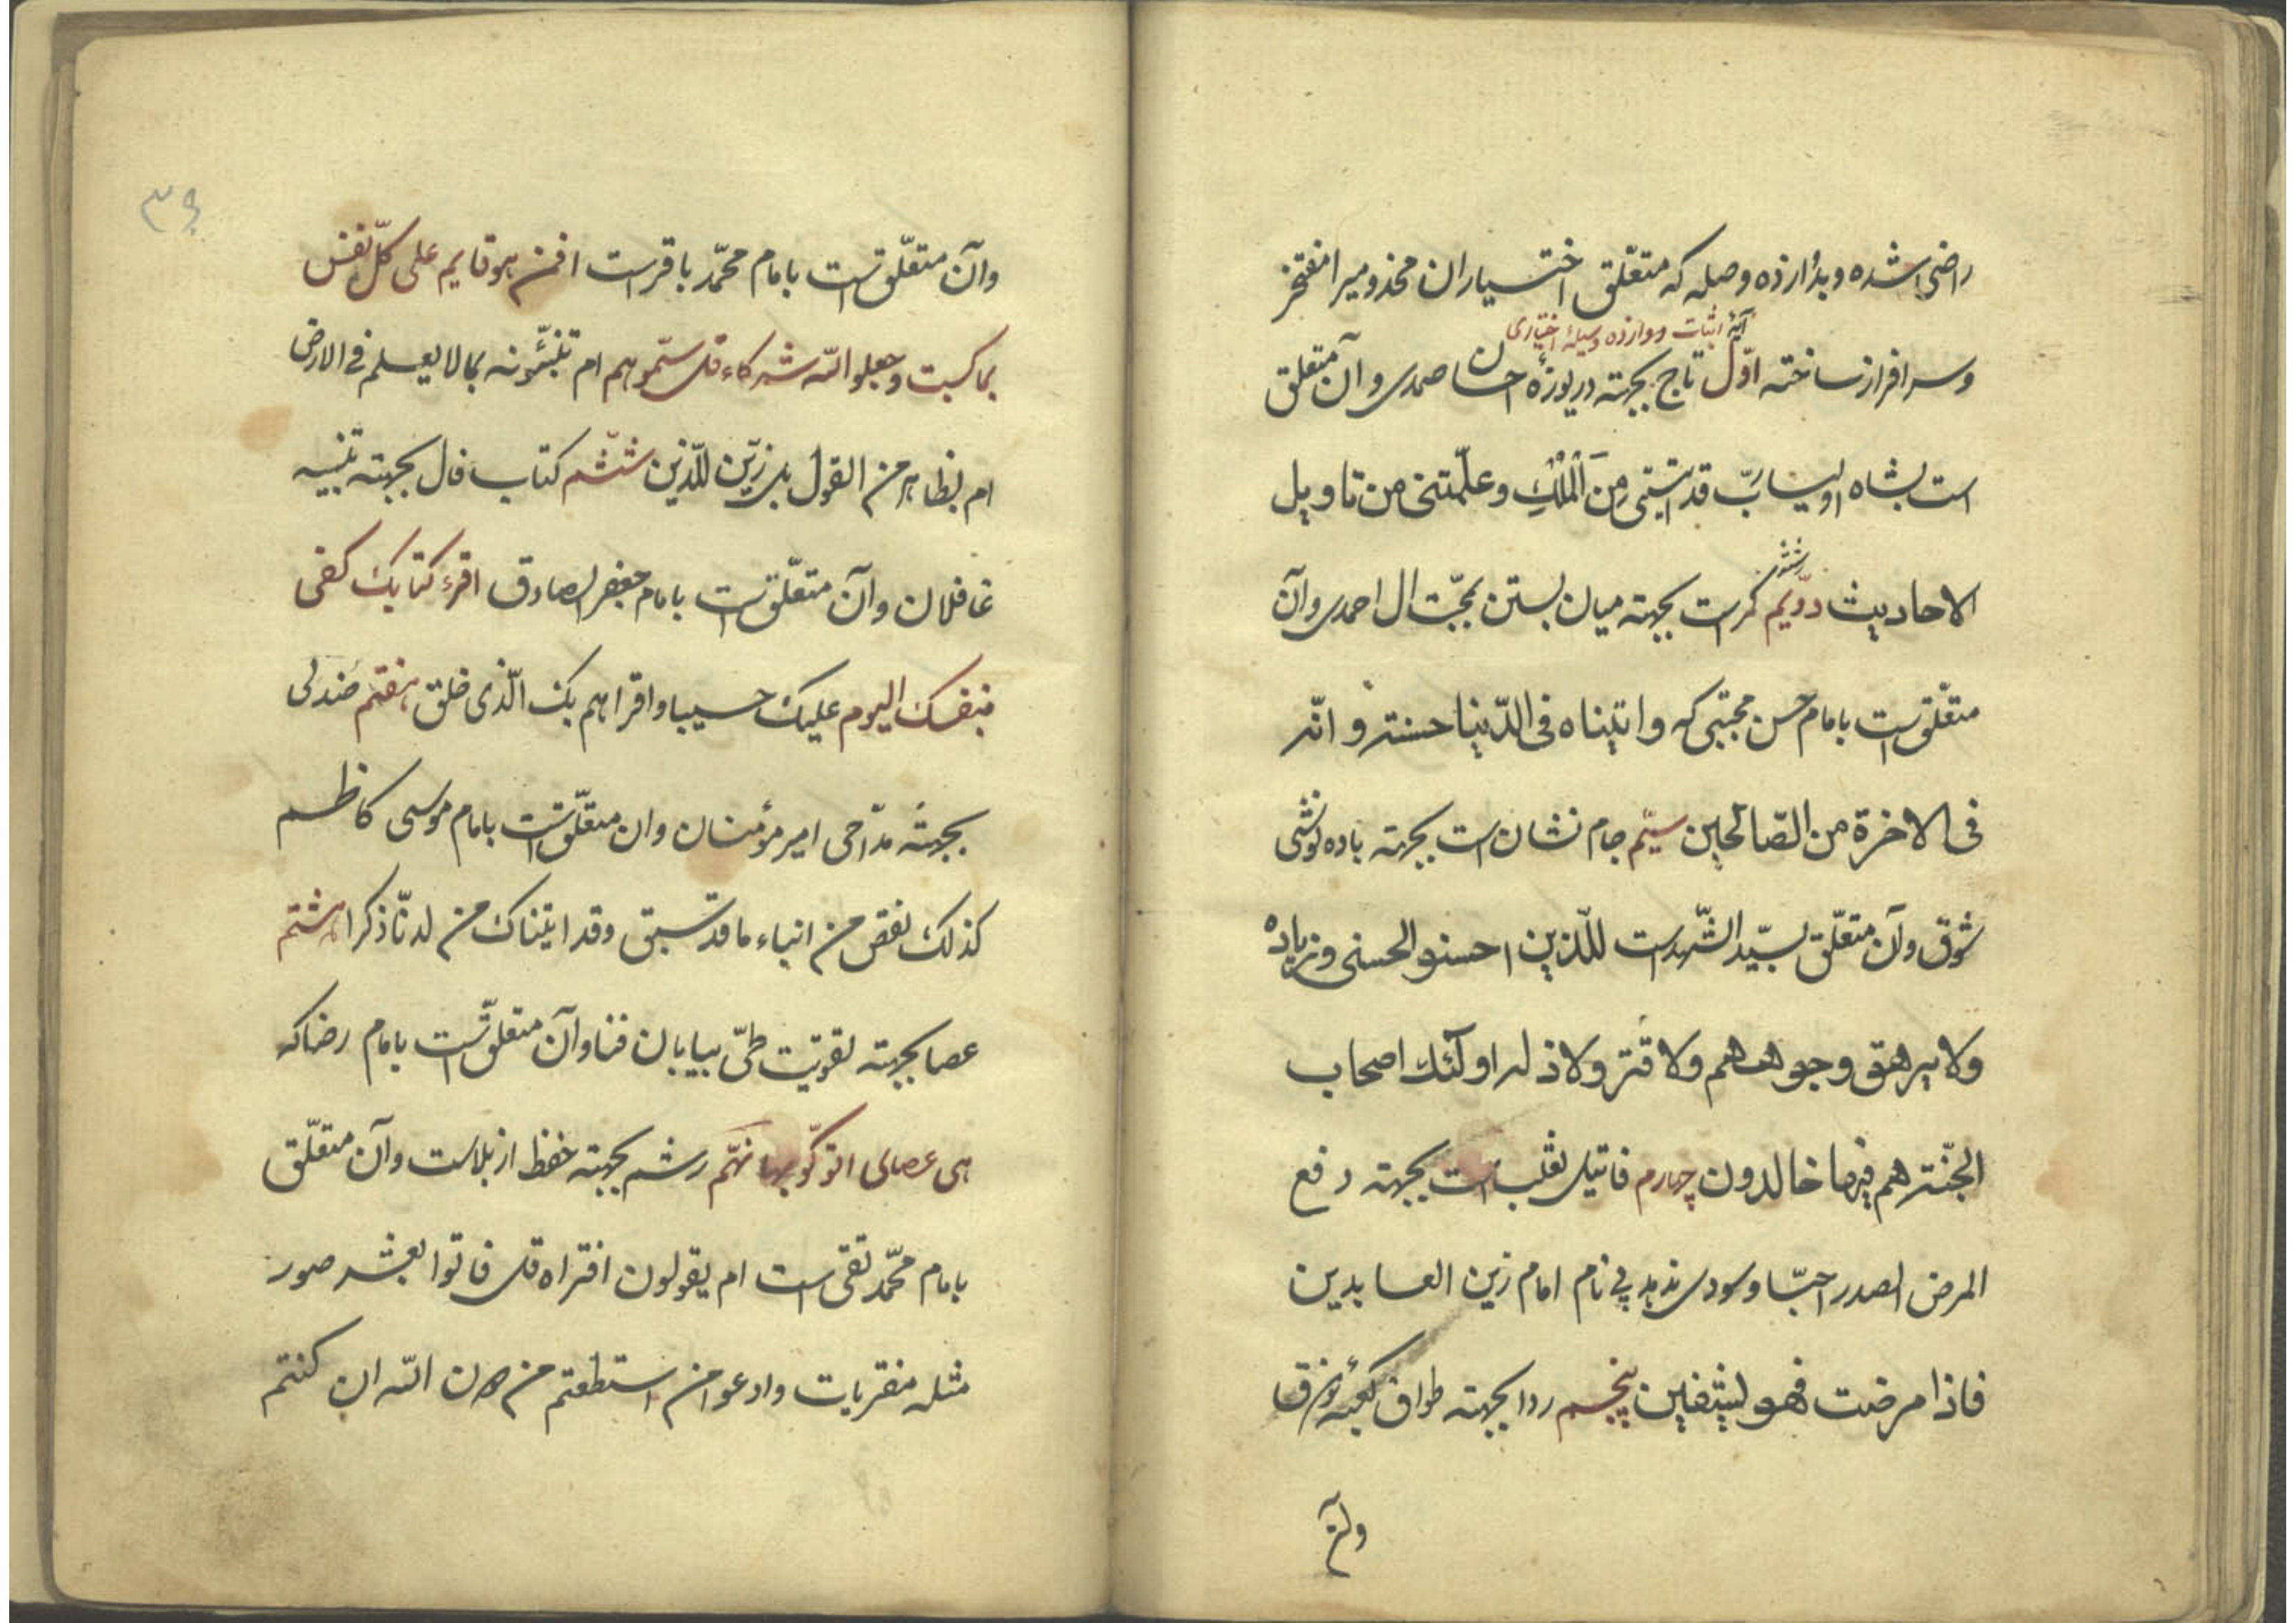 راضی شده و بدوازده وصله که متعلّق اختیاران مخدومیرا مفتخر
آیهٔ اثبات دوازده وسیلهٔ اختیاری
و سرافراز ساخته اوّل تاج بجهته دریوزهٔ احسان صمدی و آن متعلق
است بشاه اولیا ربّ قد اتیتنی من الْمُلْكِ وعلّمتنی من تاویل
الاحادیث دوّیم کمرست بجهته میان بستن بمحبّت ال احمدی و آن
متعلّق است بامام حسن مجتبی که واتیناه فی الدّنیا حسنة وانّه
فی الاخرة من الصّالحین سیّم جام نشان است بجهته باده نوشی
شوق و آن متعلّق بسیّد الشّهداست للّذین احسنو الحسنی وزیاده
ولا یرهق وجوههم ولا قتر ولا ذله اولئك اصحاب
الجنّة هم فیها خالدون چهارم فاتیل است بجهته دفع
المرض الصدر احبّا و سودی ندهد پی نام امام زین العابدین
فاذا مرضت فهو یشفین پنجم ردا بجهته طواف کعبهٔ
وآن
۳۹
وآن متعلّق است بامام محمّد باقرست افمن هو قایم علی کلّ نفس
بما کسبت وجعلو اللّه شرکاء قل سمّوهم ام تنبّئونه بما لا یعلم فی الارض
ام بظاهر من القول بل زیّن للّذین ششم کتاب فال بجهته تنبیه
غافلان وآن متعلّق است بامام جعفر الصادق اقرء کتابك کفی
بنفسك الیوم علیك حسیبا واقرا بهم ربك الّذی خلق هفتم صندلی
بجهته مدّاحی امیر مؤمنان وان متعلّق است بامام موسی کاظم
کذلك نقص من انباء ما قد سبق وقد اتیناك من لدنّا ذکرا هشتم
عصا بجهته تقویّت طیّ بیابان فنا وآن متعلّق است بامام رضا که
هی عصای اتوکّو بها نهّم رشم بجهته حفظ از بلاست وآن متعلّق
بامام محمّد تقی است ام یقولون افتراه قل فاتوا بعشر صور
مثله مفتریات وادعوا من استطعتم من دون اللّه ان کنتم